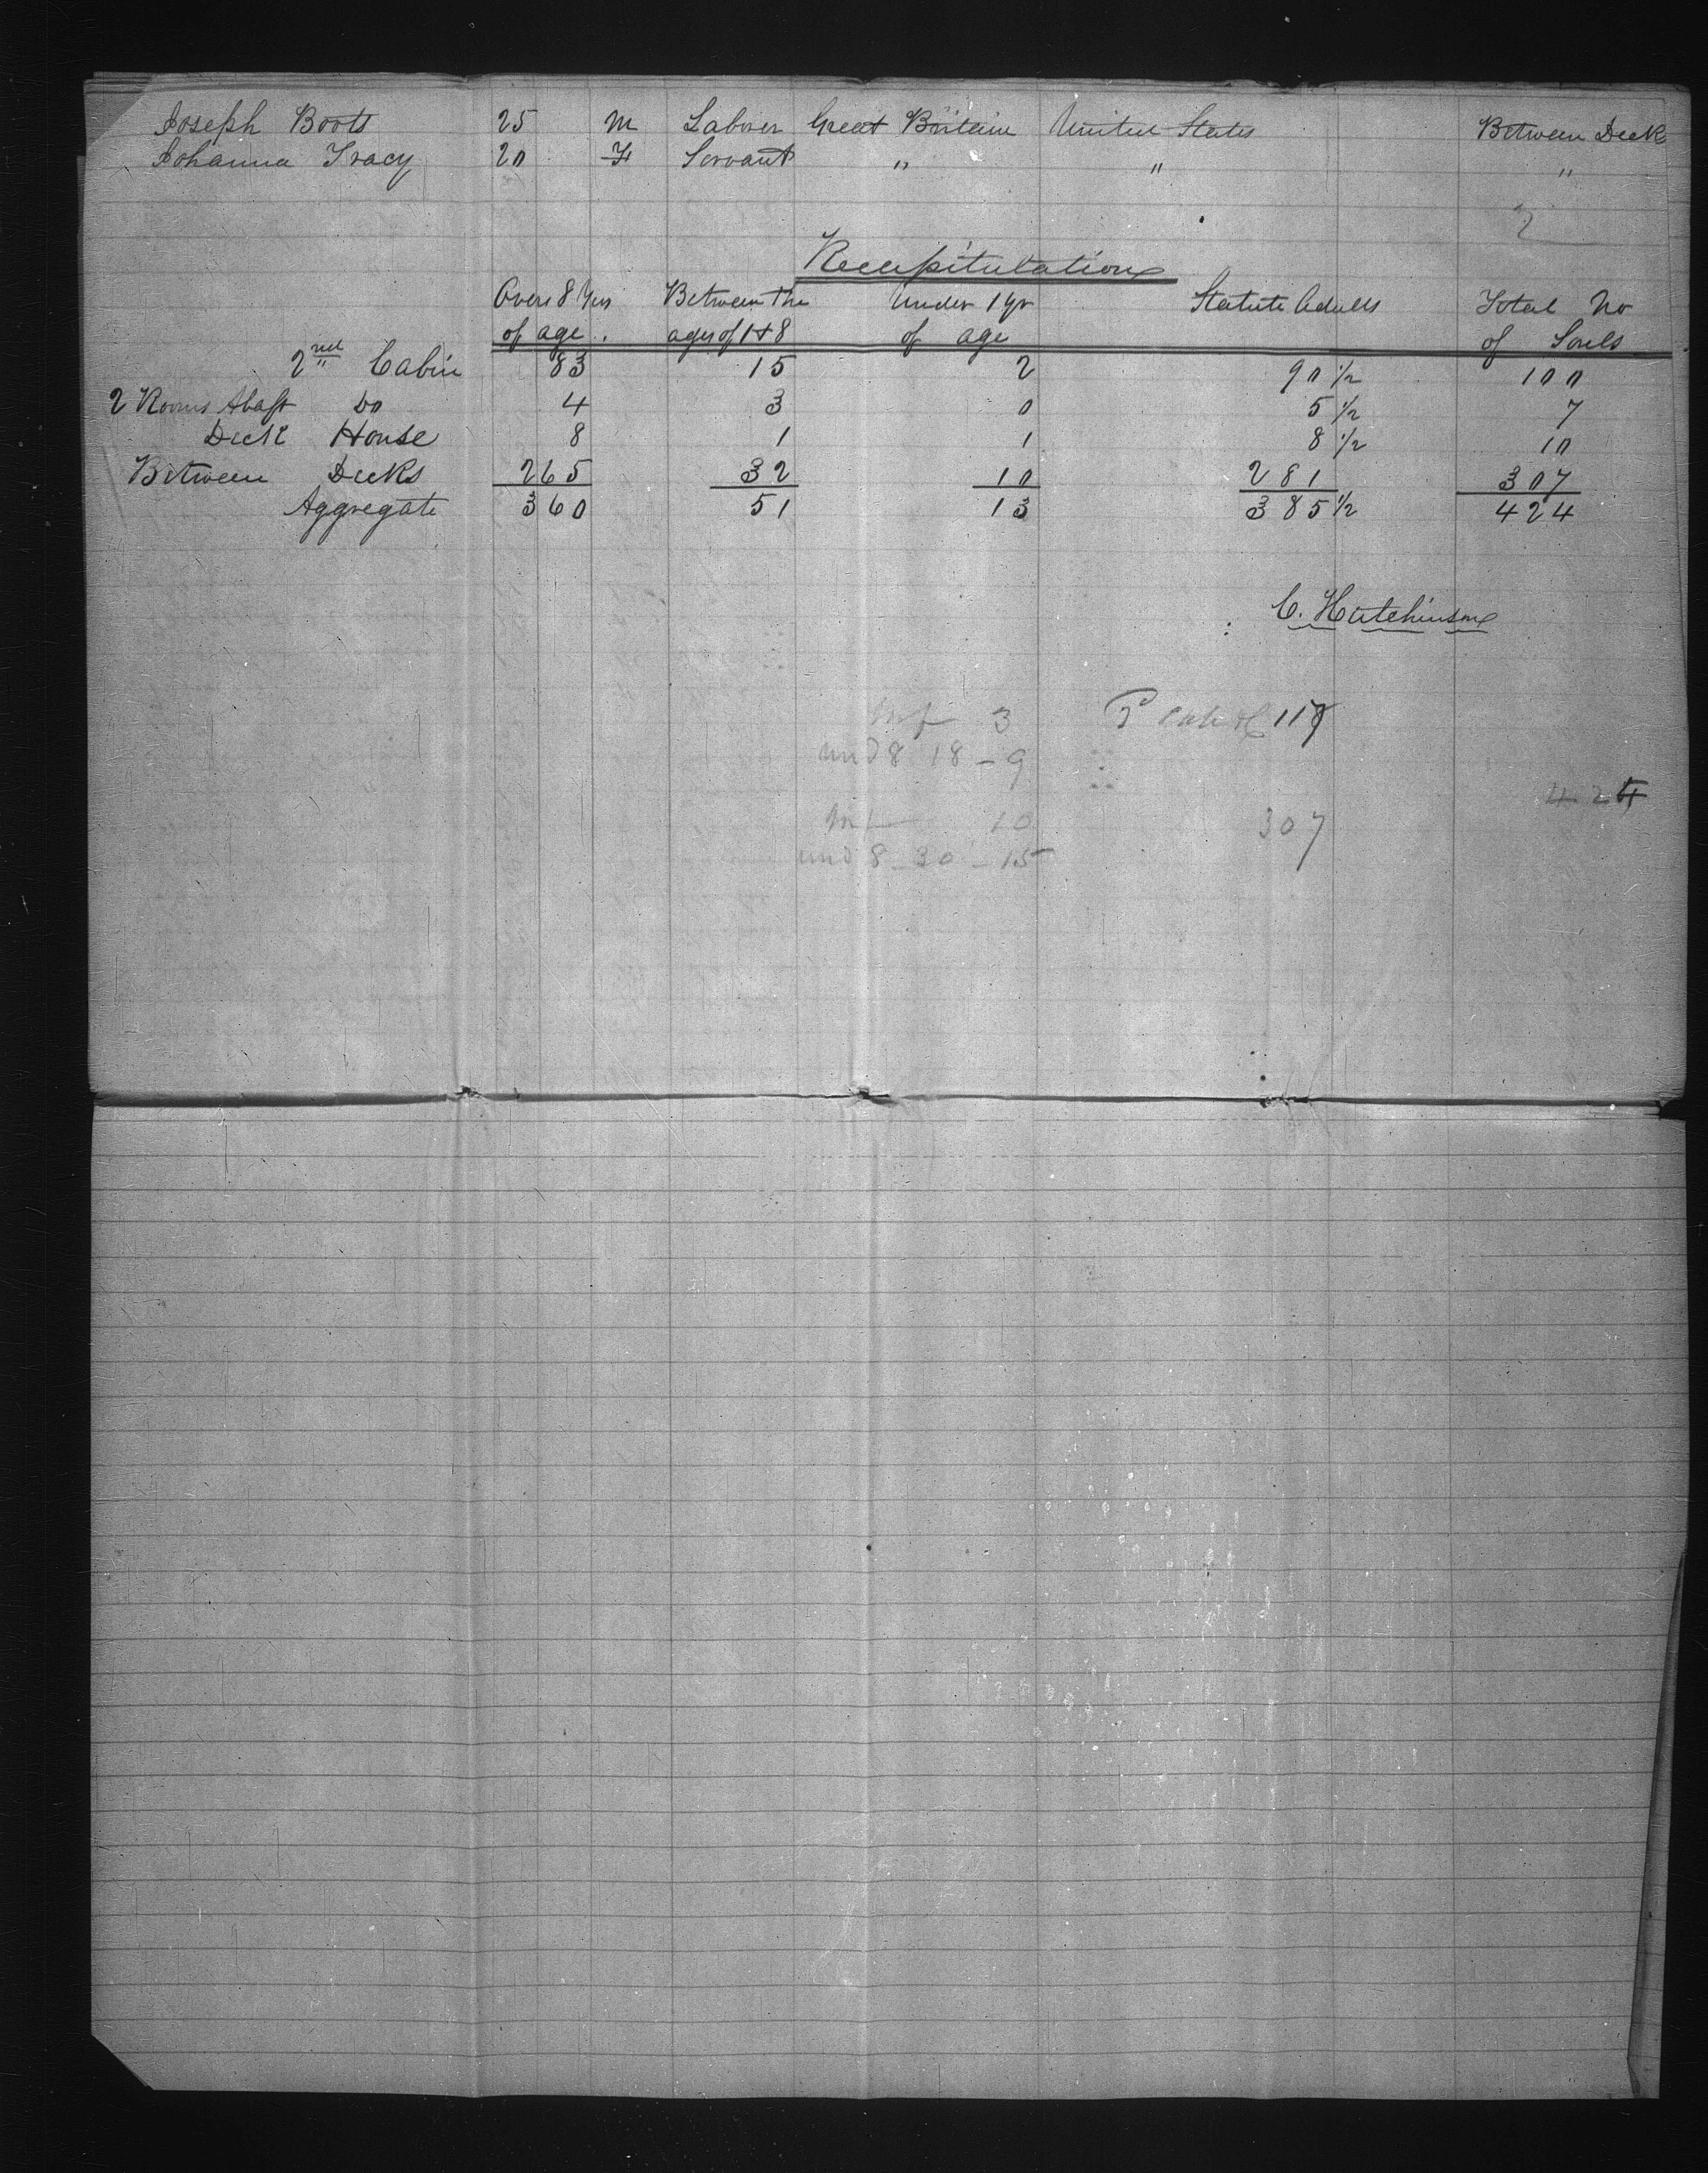 Joseph Boots 25 M Laborer Great Britain United States Between Deck
Johanna Tracy 20 F Servant " " "
2
Recapitulation
Over 8 Yrs Between the Under 1 yr Statute Adults Total No
of age. ages of 1 & 8 of age of Souls
2nd Cabin 83 15 2 90 1/2 100
2 Rooms Abaft Do 4 3 0 5 1/2 7
Deck House 8 1 1 8 1/2 10
Between Decks 265 32 10 281 307
Aggregate 360 51 13 385 1/2 424
C. Hutchinson
Inf 3 117
und 8 18 - 9
424
Inf 10 307
und 8 - 30 - 15